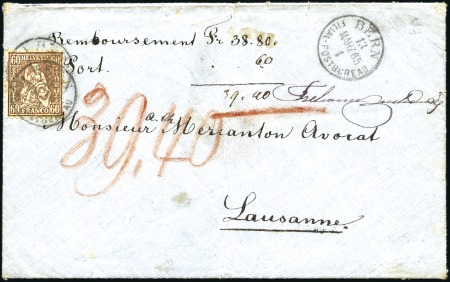 Remboursement Fr 38.80.
Port. . 60
39.40
39,40
Monsieur Mercanton Avocat
Lausanne.
60 HELVETIA 60
60 FRANCO 60
BERN
13
MARZ 65
FILIAL POSTBUREAU